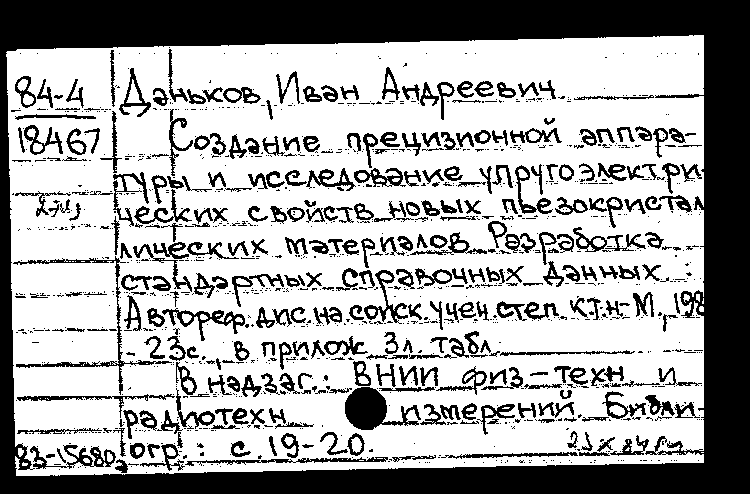 84-4 Даньков, Иван Андреевич.
18467 Создание прецизионной аппара-
туры и исследование упругоэлектри-
2 экз ческих свойств новых пьезокристал
лических материалов. Разработка
стандартных справочных данных :
Автореф. дис. на соиск. учен. степ. к.т.н- М., 198
- 23с., в прилож 3л. табл.
В надзаг.: ВНИИ физ-техн. и
радиотехн измерений. Библи-
83-15680 огр.: с. 19-20.